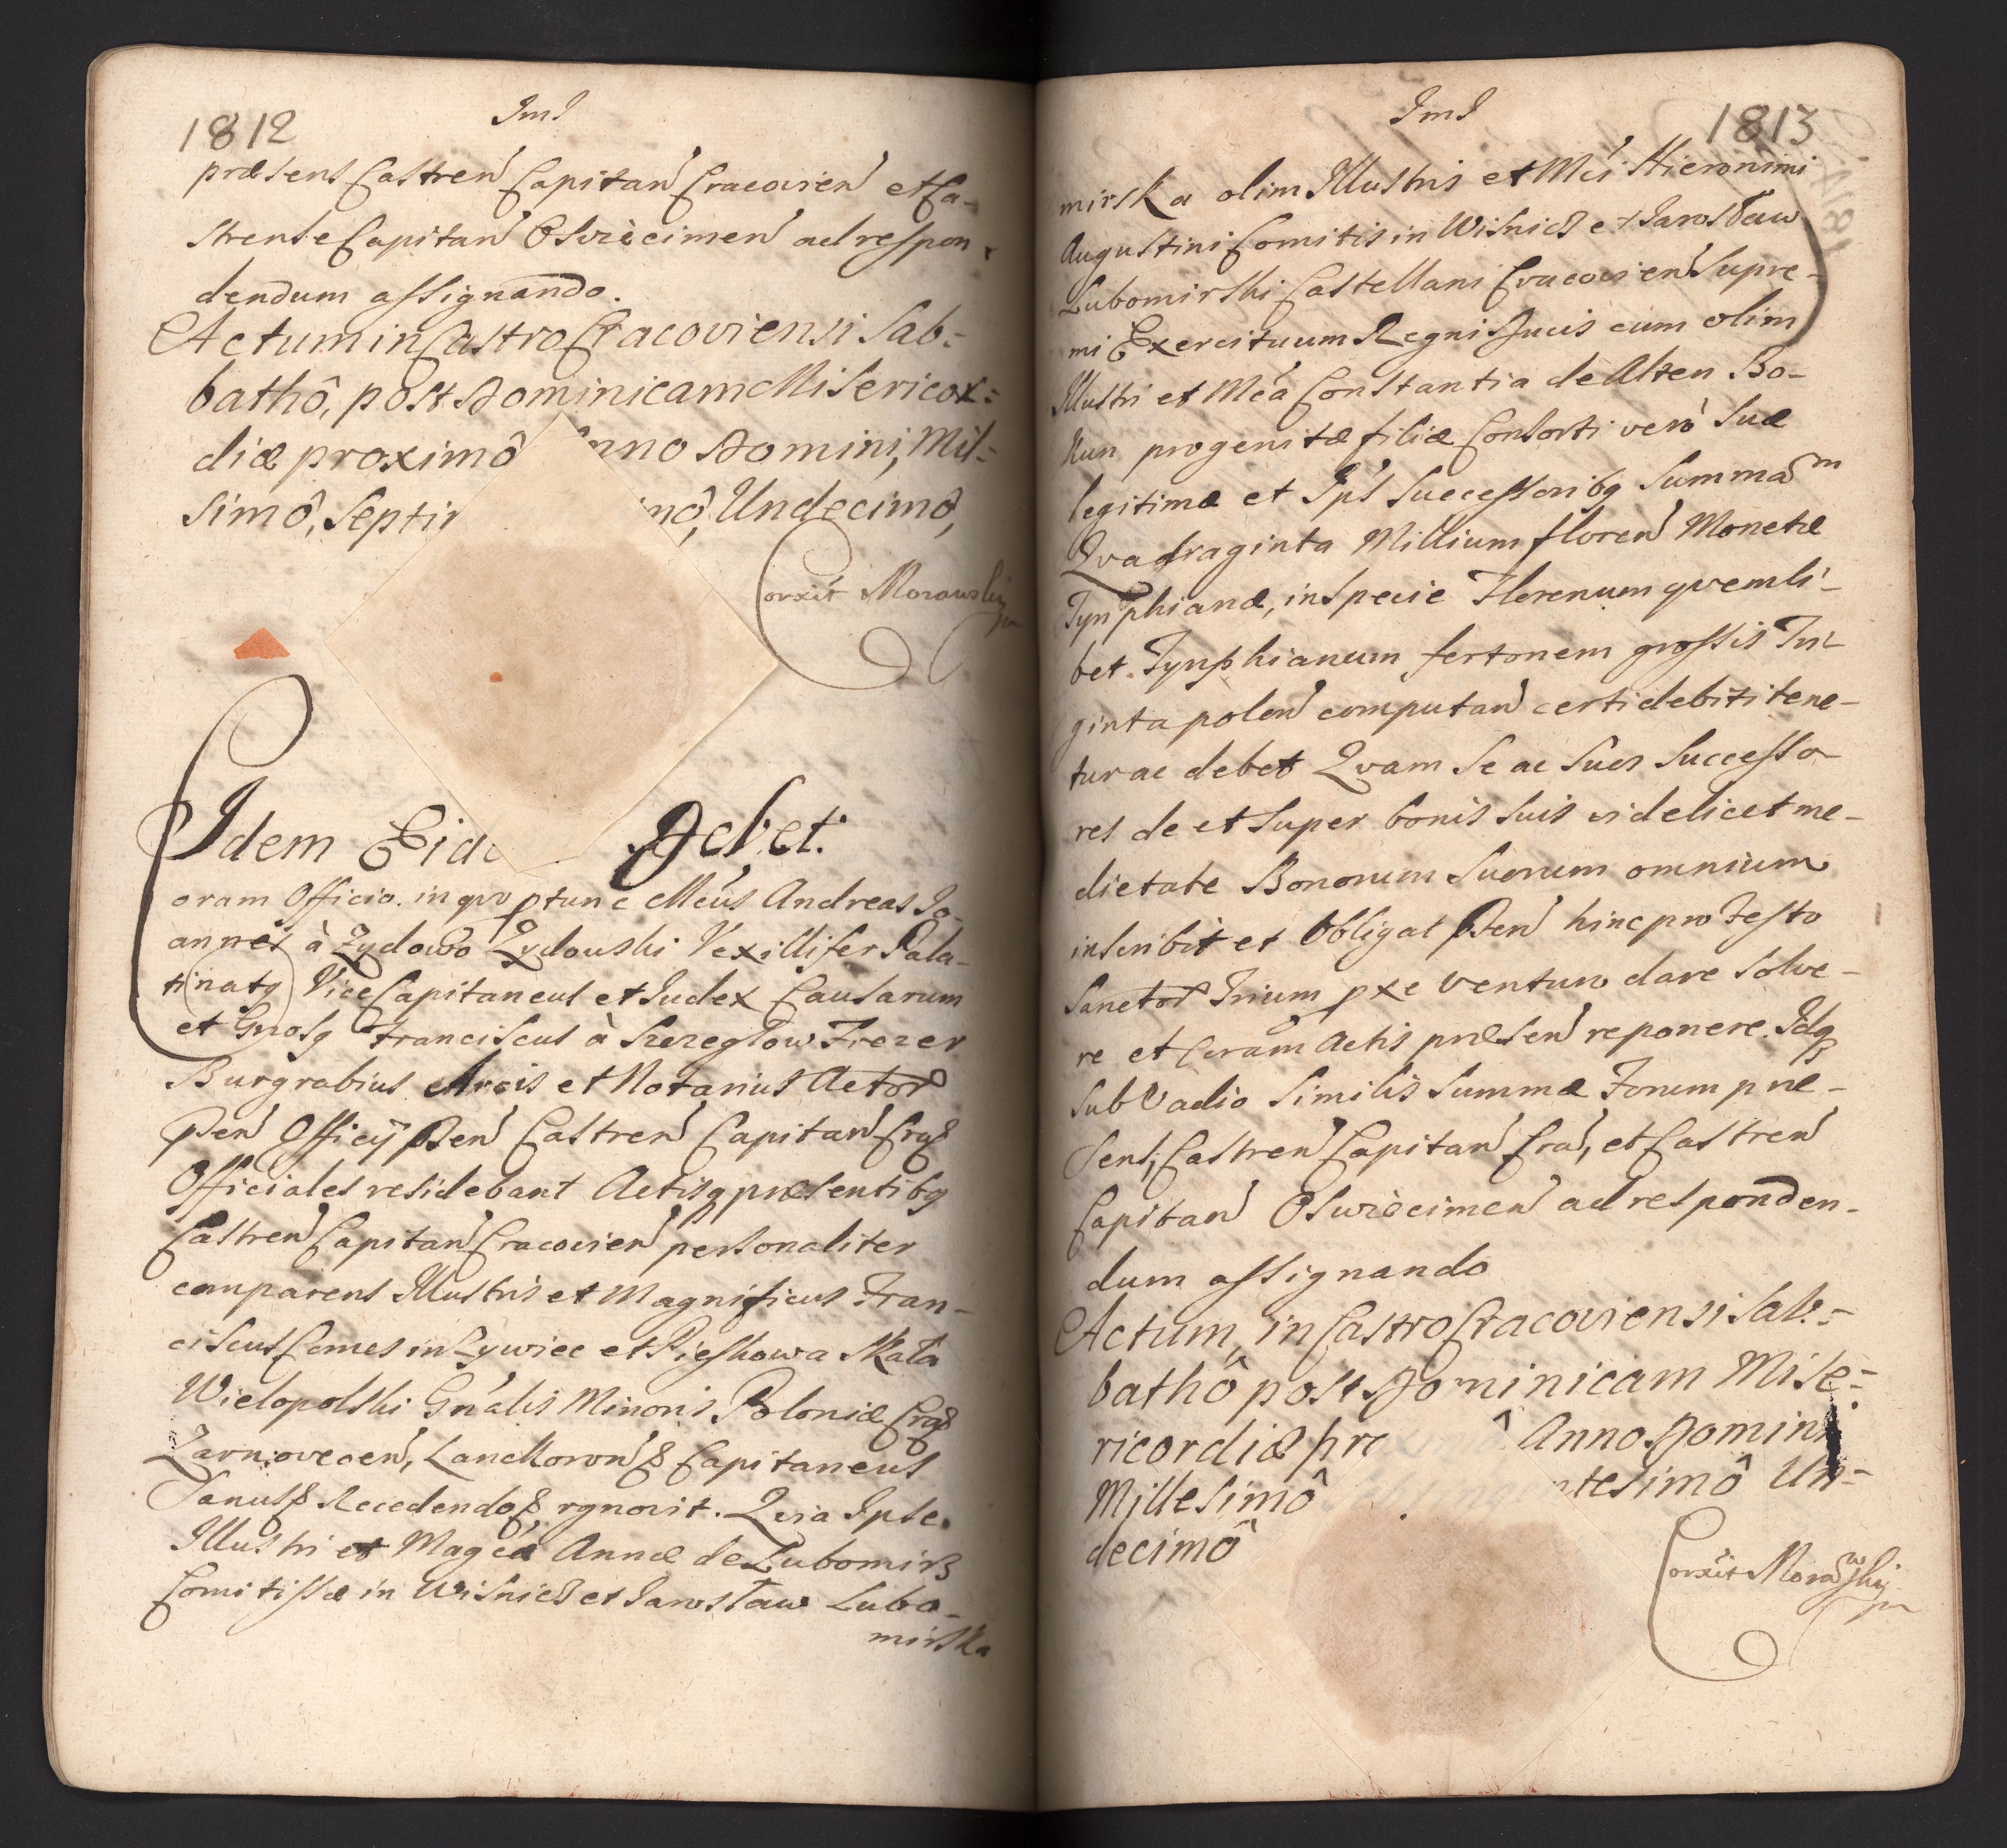 1812
ImI
præsens Castren Capitan Cracovien et Ca-
strense Capitan Osviècimen ad respon-
dendum assignando.
Actum in Castro Cracoviensi Sab=
bathô, post Dominicam Misericor=
diæ proximô nno Domini, Mil=
simô, Septi mô, Undecimô,
Corxit Morawski
Idem Eid Debet.
Coram Officio. in qvo ptunc Mcus Andreas Jo-
annes à Zydowo Zydowski Vexillifer Pala-
tinatq Vice Capitaneus et Judex Causarum
et Gnosq Franciscus à Szczegłow Trezer
Burgrabius Arcis et Notarius Actor
Pen Officÿ Pen Castren Capitan Cra
Officiales residebant Actisq præsentibq
Castren Capitan Cracovien personaliter
comparens Illustris et Magnificus Fran-
ciscus Comes in Zywiec et Pieskowa Skała
Wielopolski Gnalis Minoris Poloniæ Cra
Zarnovecen, Lanckoron & Capitaneus
Sanus & Recedendo & rgnovit. Qvia Ipse
Illustri et Magca Annæ de Lubomirz
Comitissæ in Wisnicz et Jarosław Lubo-
mirska
ImI
1813
mirska olim Illustris et Mci Hieronimi
Augustini Comitis in Wisnicz et Jarosław
Lubomirski Castellani Cracovien Supre-
mi Exercituum Regni Ducis cum olim
Illustri et Mca Constantia de Alten Bo-
kun progenitæ filiæ Consorti verò Suæ
legitimæ et Ips Successoribq Summam
Qvadraginta Millium floren Monetæ
Tynphianæ, in Specie Florenum qvemli-
bet Tynphianum fertonem grossis Tri-
ginta polon computan certi debiti tene-
tur ac debet Qvam Se ac Suos Successo-
res de et Super bonis Suis videlicet me-
dietate Bonorum Suorum omnium
inscribit et Obligat Pen hinc pro Festo
Sanctor Trium pxe venturo dare Solve-
re et Coram Actis præsen reponere. Idq
Sub Vadio Similis Summæ Forum præ-
sens, Castren Capitan Cra, et Castren
Capitan Oswiècimen ad responden-
dum assignando
Actum, in Castro Cracoviensi Sab=
bathô post Dominicam Mise=
ricordiæ pr Anno Domini
Millesimô ntesimô Un=
decimô
Corxit Morawski